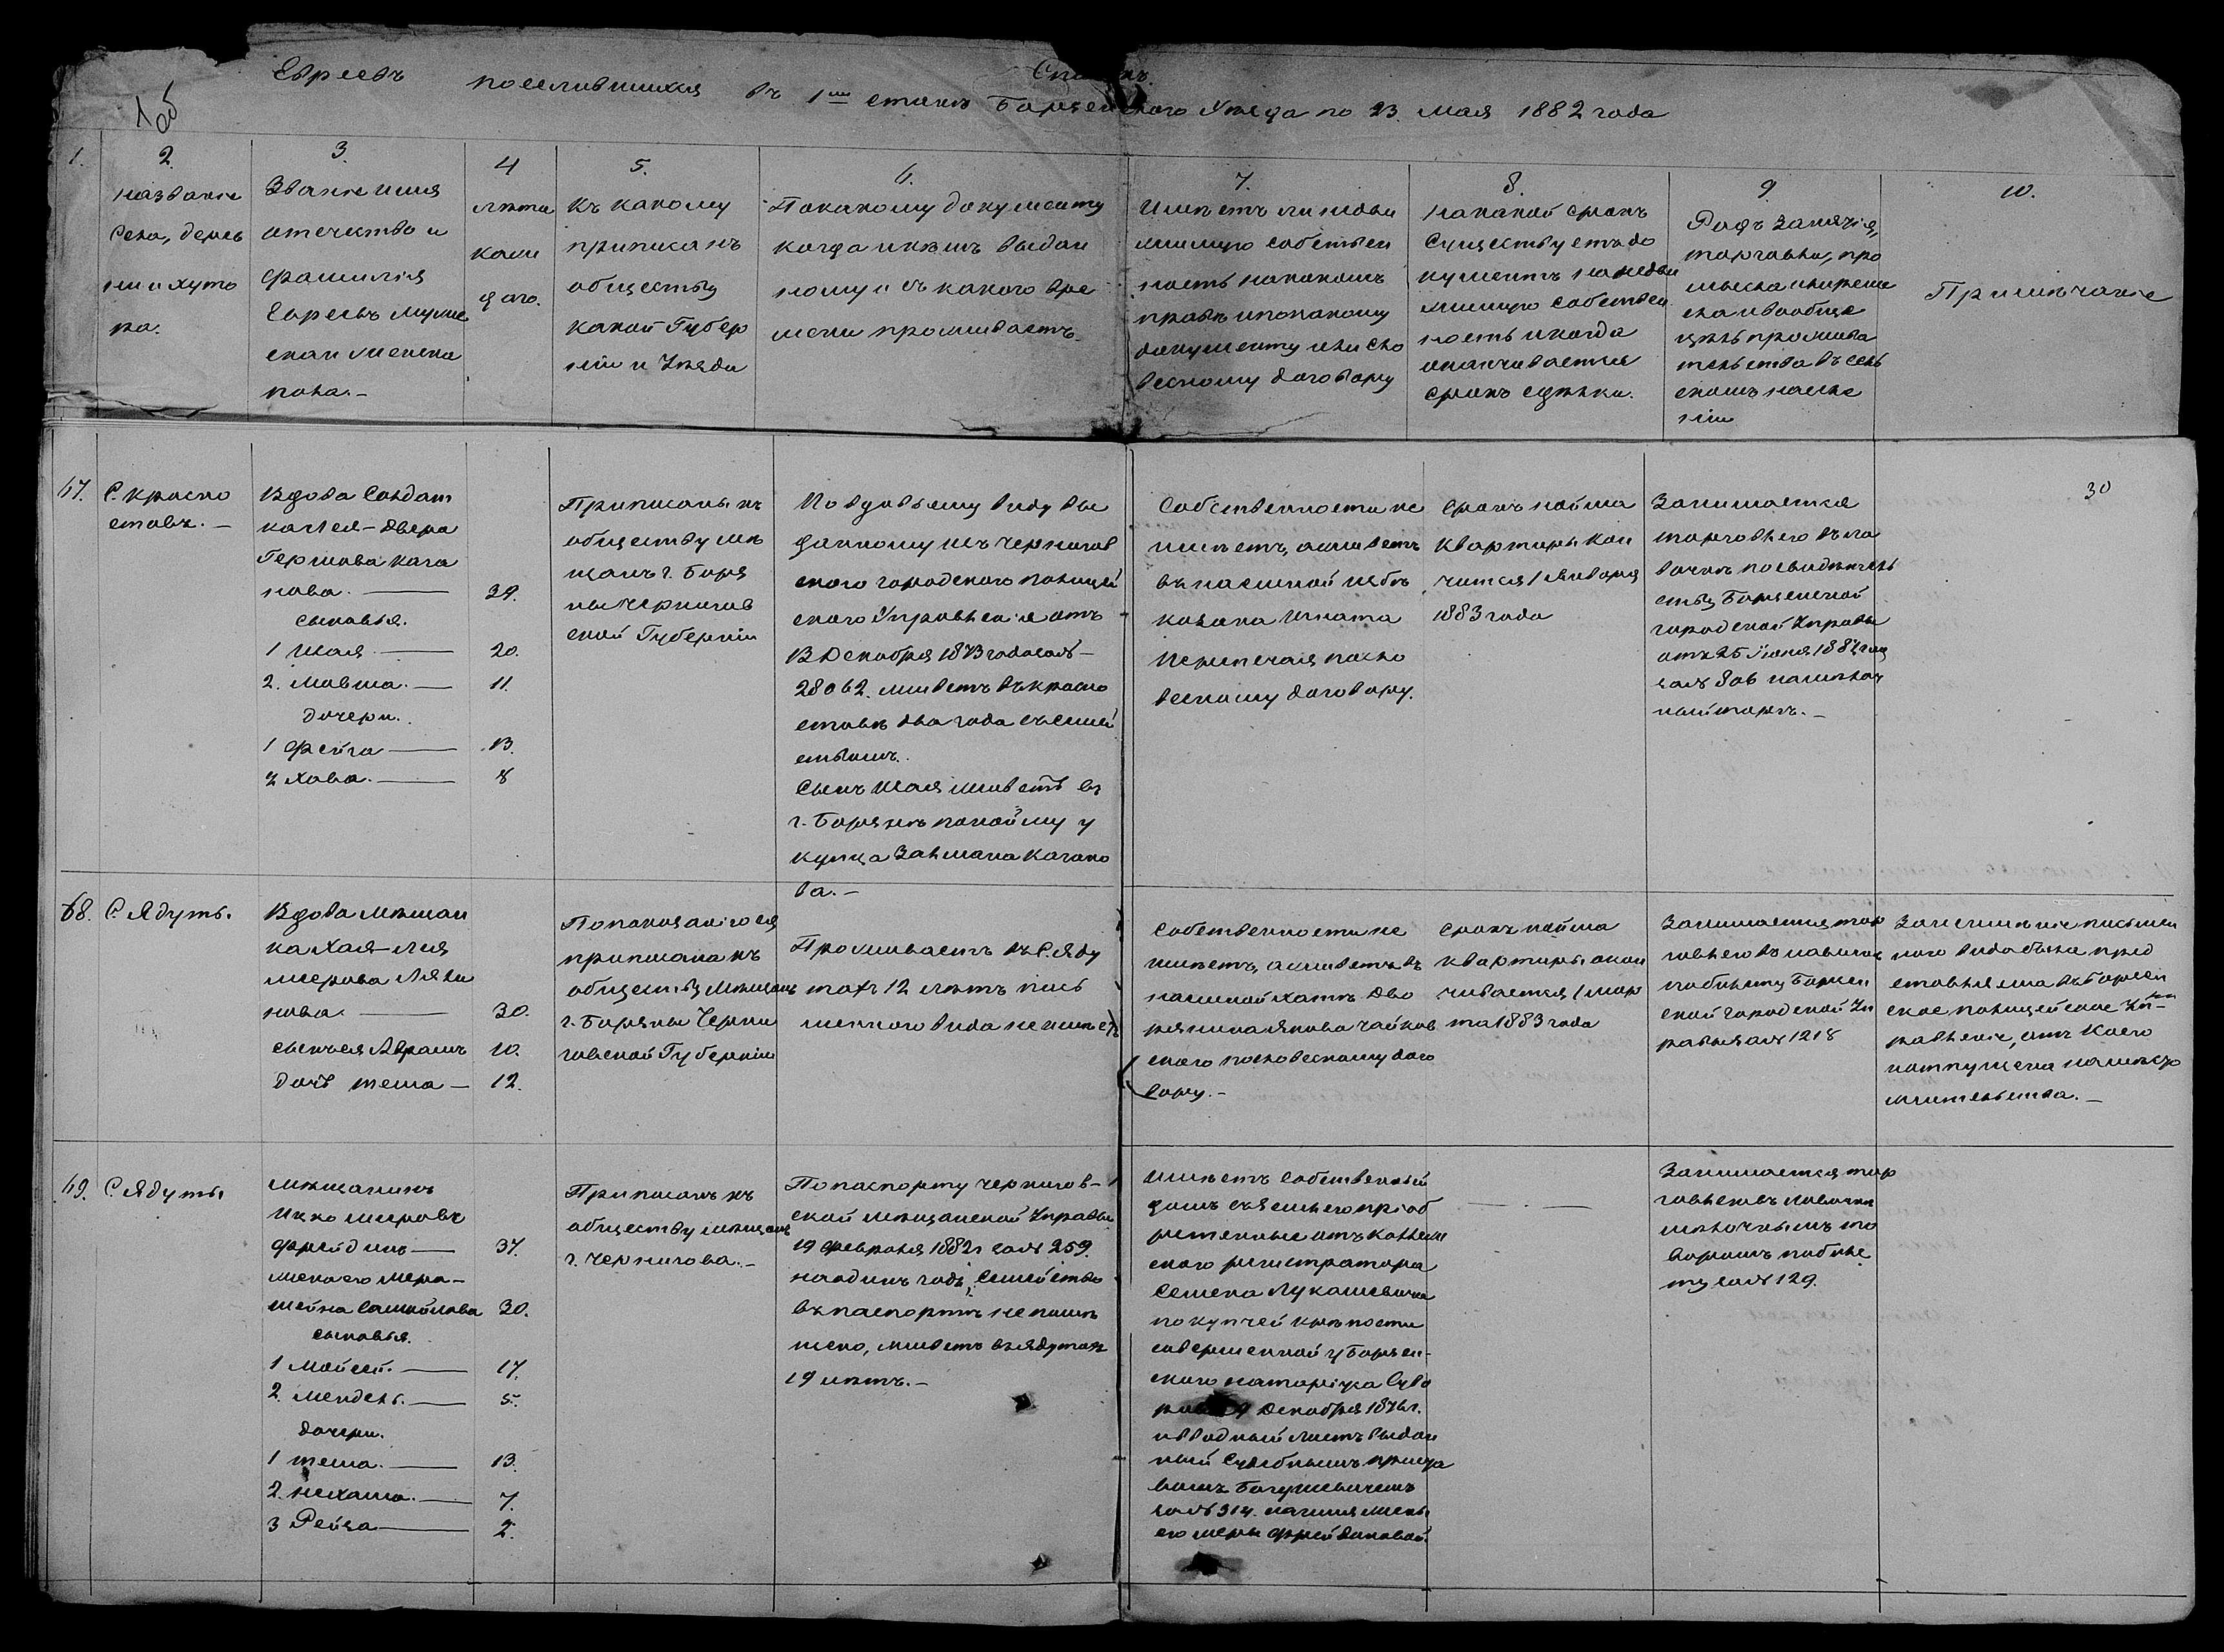 Евреевъ поселившихся въ 1мъ станѣ Борзенского Уѣзда по 23 мая 1882 года
1об
1.
2.
названіе
Села, дерев
ни и хуто
ра.
3.
Званіе имя
отечество и
фамилія
Евреевъ муже
скаи женска
пола.-
4
лѣта
каж
даго.
5.
Къ какому
приписанъ
обществу
какой Губер
ніи и Уѣзда
6.
По какому документу
когда икѣмъ выдан
ному и съ какого вре
мени проживаетъ.
7.
Имѣетъ ли недви
жимую собствен
ность накакомъ
правѣ ипокакому
документу или сло
весному договору
8.
Накакой срокъ
Существуетъ до
кументъ нанедви
жимую собствен
ность икогда
оканчивается
срокъ сдѣлки.
9.
Родъ Занятія,
торговли, про
мысла иаренде
ка ивообще
цѣль прожива
тельства въ сель
скомъ населе
ніи
10.
Примѣчаніе
30
67.
С. Красно
ставъ.-
Вдова Солдат
ка Лея-Двера
Гершова Кага
нова. 39.
сыновья.
1 Шая 20.
2. Мовша. 11.
дочери.
1 Фейга 13.
2 Хава. 8
Приписаны къ
обществу мѣ
щанъ г. Борз
ны Чернигов
ской Губерніи
По вдовьему виду вы
данному изъ Чернигов
ского городского полицей
ского Управленія отъ
13 Декабря 1873 года за №
28062. живетъ въ Красно
ставѣ два года съ семей
ствомъ.
Сынъ Шая живетъ въ
г. Борзнѣ понайму у
купца Залмана Кагано
ва.-
Собственности не
имѣетъ, а живетъ
въ наемной избѣ
козака Игната
по сло
весному договору.
Срокъ найма
квартиры кон
чится 1 Января
1883 года
Занимается
торговлею въ ла
вочкѣ по свидѣтель
ству Борзенской
городской Управы
отъ 25 Июня 188 года
за № 806 на мелоч
ный торгъ.-
68.
С. Ядуты.
Вдова мѣщан
ка Хая-Лея
Мерова Ляхи
нова. 30.
сынъ ея Абрамъ 10.
дочь теша 12.
По показанію ея
приписана къ
обществу Мѣщанъ
г. Борзны Черни
говской Губерніи
Проживаетъ въ С. Яду
тахъ 12 лѣтъ пись
менного вида не имѣетъ
Собственности не
имѣетъ, а живетъ въ
наемной хатѣ Дво
рянина Якова Чайков
ского по словесному дого
вору.-
Срокъ найма
квартиры окан
чивается 1 мар
та 1883 года
Занимается тор
говлею въ лавочкѣ
по билету Борзен
ской городской Уп
равы за № 1218
Занеимѣніе письмен
ного вида была пред
ставляема въ Борзен
ское полицейское Уп-
равленіе, отъ Коего
и отпущена на мѣсто
жительства.-
69.
С. Ядуты
Мѣщанинъ
Ицко Меровъ
Фрейдинъ 37.
жена его Мера-
Шейна Самойлова 30.
сыновья.
1 Мойсей. 17.
2. Мендель. 5.
дочери.
1 теша. 13.
2. Нехама. 7.
3 Рейза 2.
Приписанъ къ
обществу мѣщанъ
г. Чернигова.-
По паспорту Чернигов-
ской мѣщанской Управы
19 февраля 1882 г за № 259.
на одинъ годъ, Семейство
въ паспортѣ не помѣ
щено, живетъ въ Ядутахъ
19 лѣтъ.-
Имѣетъ собственный
домъ съ землею пріоб
ретенные отъ Коллеж
ского регистратора
Семена Лукашевича
по купчей крѣпости
совершенной у Борзен-
ского натаріуса Суво
Декабря 1876 г.
и вводный листъ выдан
ный Судебнымъ приста
вомъ Богушевичемъ
за № 314. на имя жены
его Меры Фрейдиновой.
Занимается тор
говлею въ лавочкѣ
мѣлочнымъ то
варомъ по биле
ту за № 129.